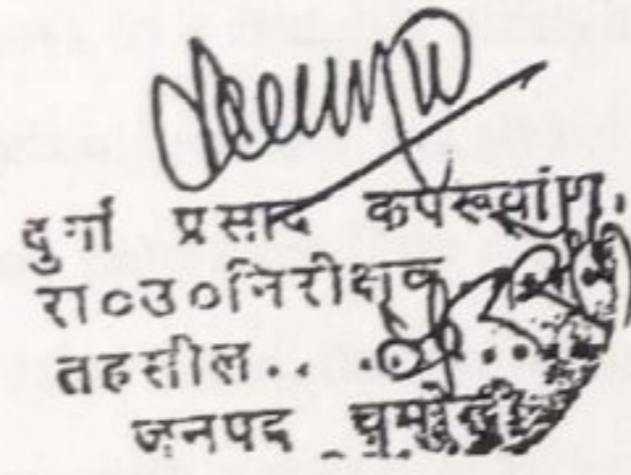 दुर्गा प्रसाद
रा०उ०निरीक्षक
तहसील.. ....
जनपद चमोली